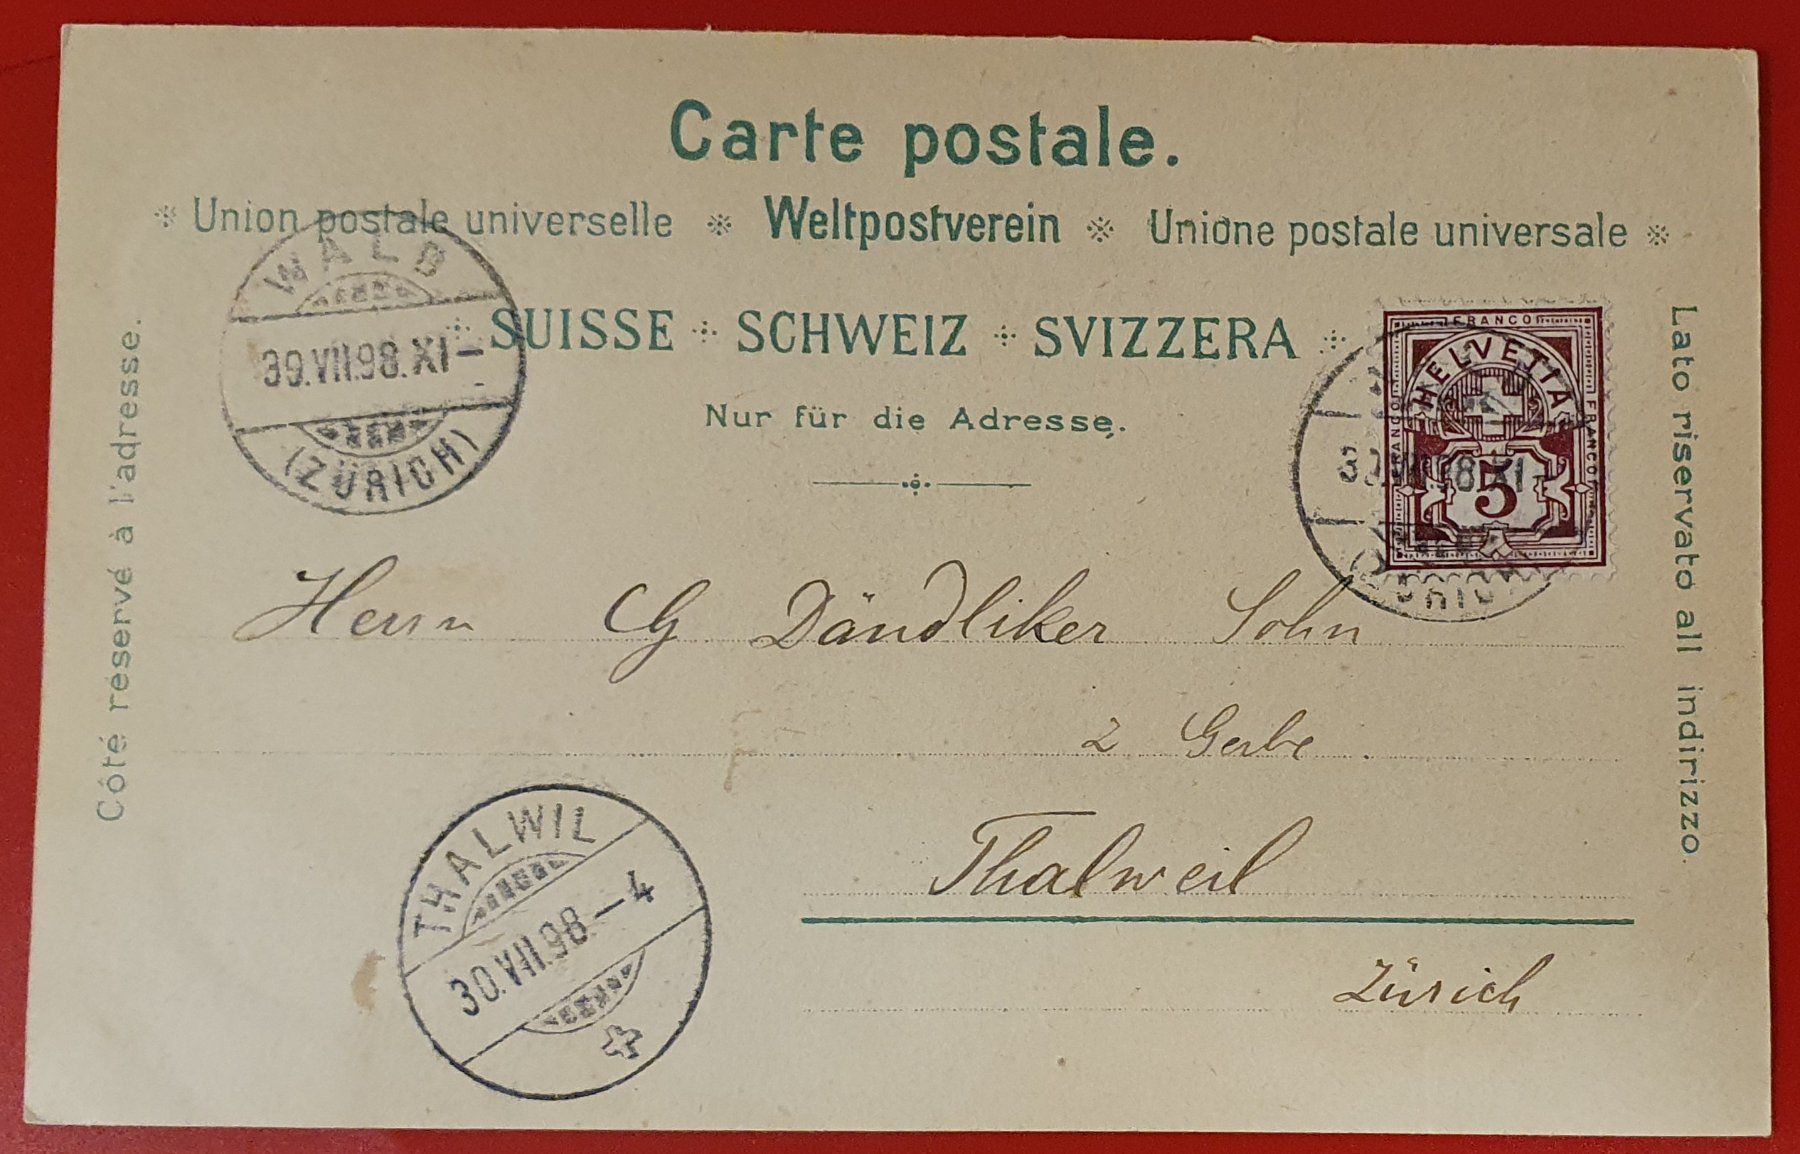 Carte postale.
Union postale universelle Weltpostverein Unione postale universale
SUISSE SCHWEIZ SVIZZERA
Nur für die Adresse.
Côté réservé à l'adresse.
Lato riservato all indirizzo.
WALD
30.VII.98.XI-
(ZÜRICH)
FRANCO
FRANCO
FRANCO
HELVETIA
5
VII.98.XI-
Herrn CG Dändliker Sohn
z Gerbe
Thalweil
Zürich
THALWIL
30.VII.98-4